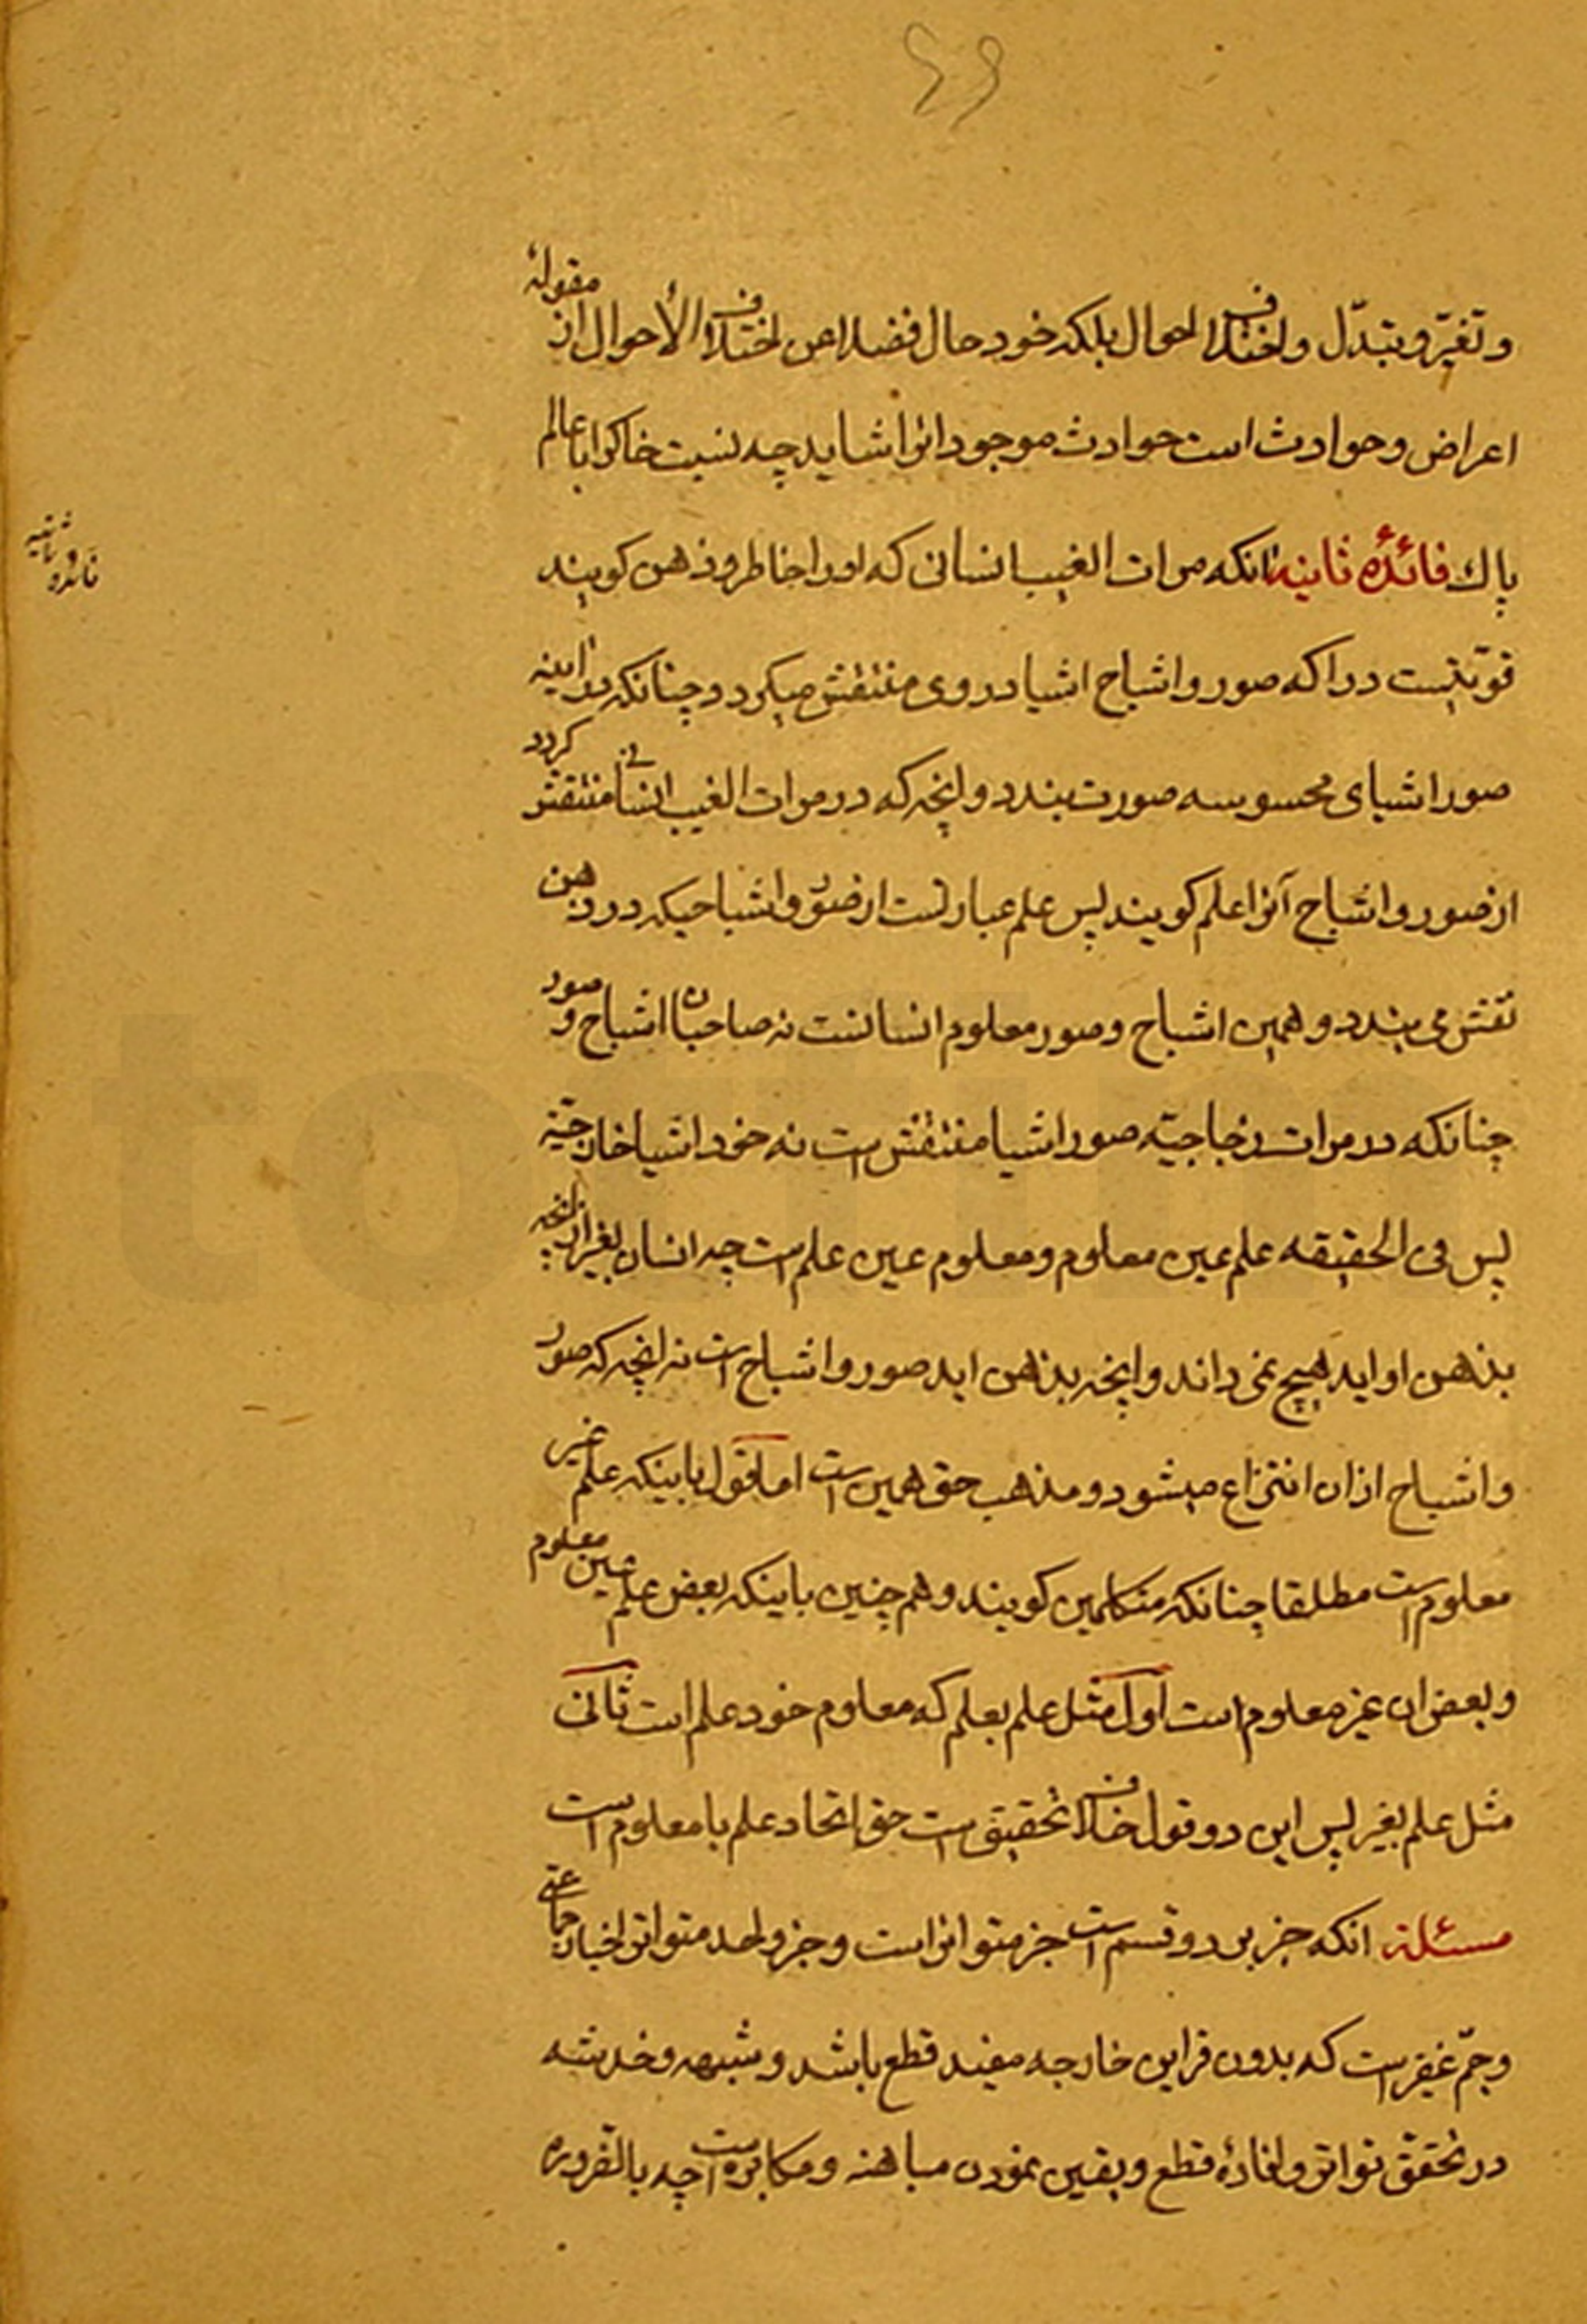 ۴۹
و تغیّر و تبدّل و اختلاف احوال بلکه خود حال فضلا عن اختلاف الأحوال از مقولهٔ
اعراض و حوادث است حوادث موجود انرا نشاید چه نسبت خاکرا با عالم
پاك فائدهٔ ثانیه انکه مرات الغیب انسانی که اورا خاطر و ذهن کویند
قوّتیست دراکه صور و اشباح اشیا در وی منتقش میکردد چنانکه در اینه
صور اشیای محسوسه صورت بندد و انچه که در مرات الغیب انسانی منتقش کردد
از صور و اشباح آنرا علم کویند پس علم عبارتست از صور و اشباحیکه در ذهن
نقش می بندد و همین اشباح و صور معلوم انسانست نه صاحبان اشباح و صور
چنانکه در مرات زجاجیّه صور اشیا منتقش است نه خود اشیا خارجیّه
پس فی الحقیقه علم عین معلوم و معلوم عین علم است چه انسان بغیر از انچه
بذهن او اید هیچ نمی داند و انچه بذهن اید صور و اشباح است نه انچه که صور
و اشباح ازان انتزاع میشود و مذهب حق همین است اما قول باینکه علم غیر
معلوم است مطلقا چنانکه متکلمین کویند و هم چنین باینکه بعض علم عین معلوم
و بعض ان غیر معلوم است اوّل مثل علم بعلم که معلوم خود علم است ثانی
مثل علم بغیر پس این دو قول خلاف تحقیق است حق اتحاد علم با معلوم است
مسئلة انکه خبر بر دو قسم است خبر متواتر است و خبر واحد متواتر اخبار جماعتی
و جمّ غفیر است که بدون قراین خارجه مفید قطع باشد و شبهه و خدشه
در تحقّق تواتر و افادهٔ قطع و یقین نمودن مباهته و مکابره است چه بالضّروره
فائده ثانیه
toffim